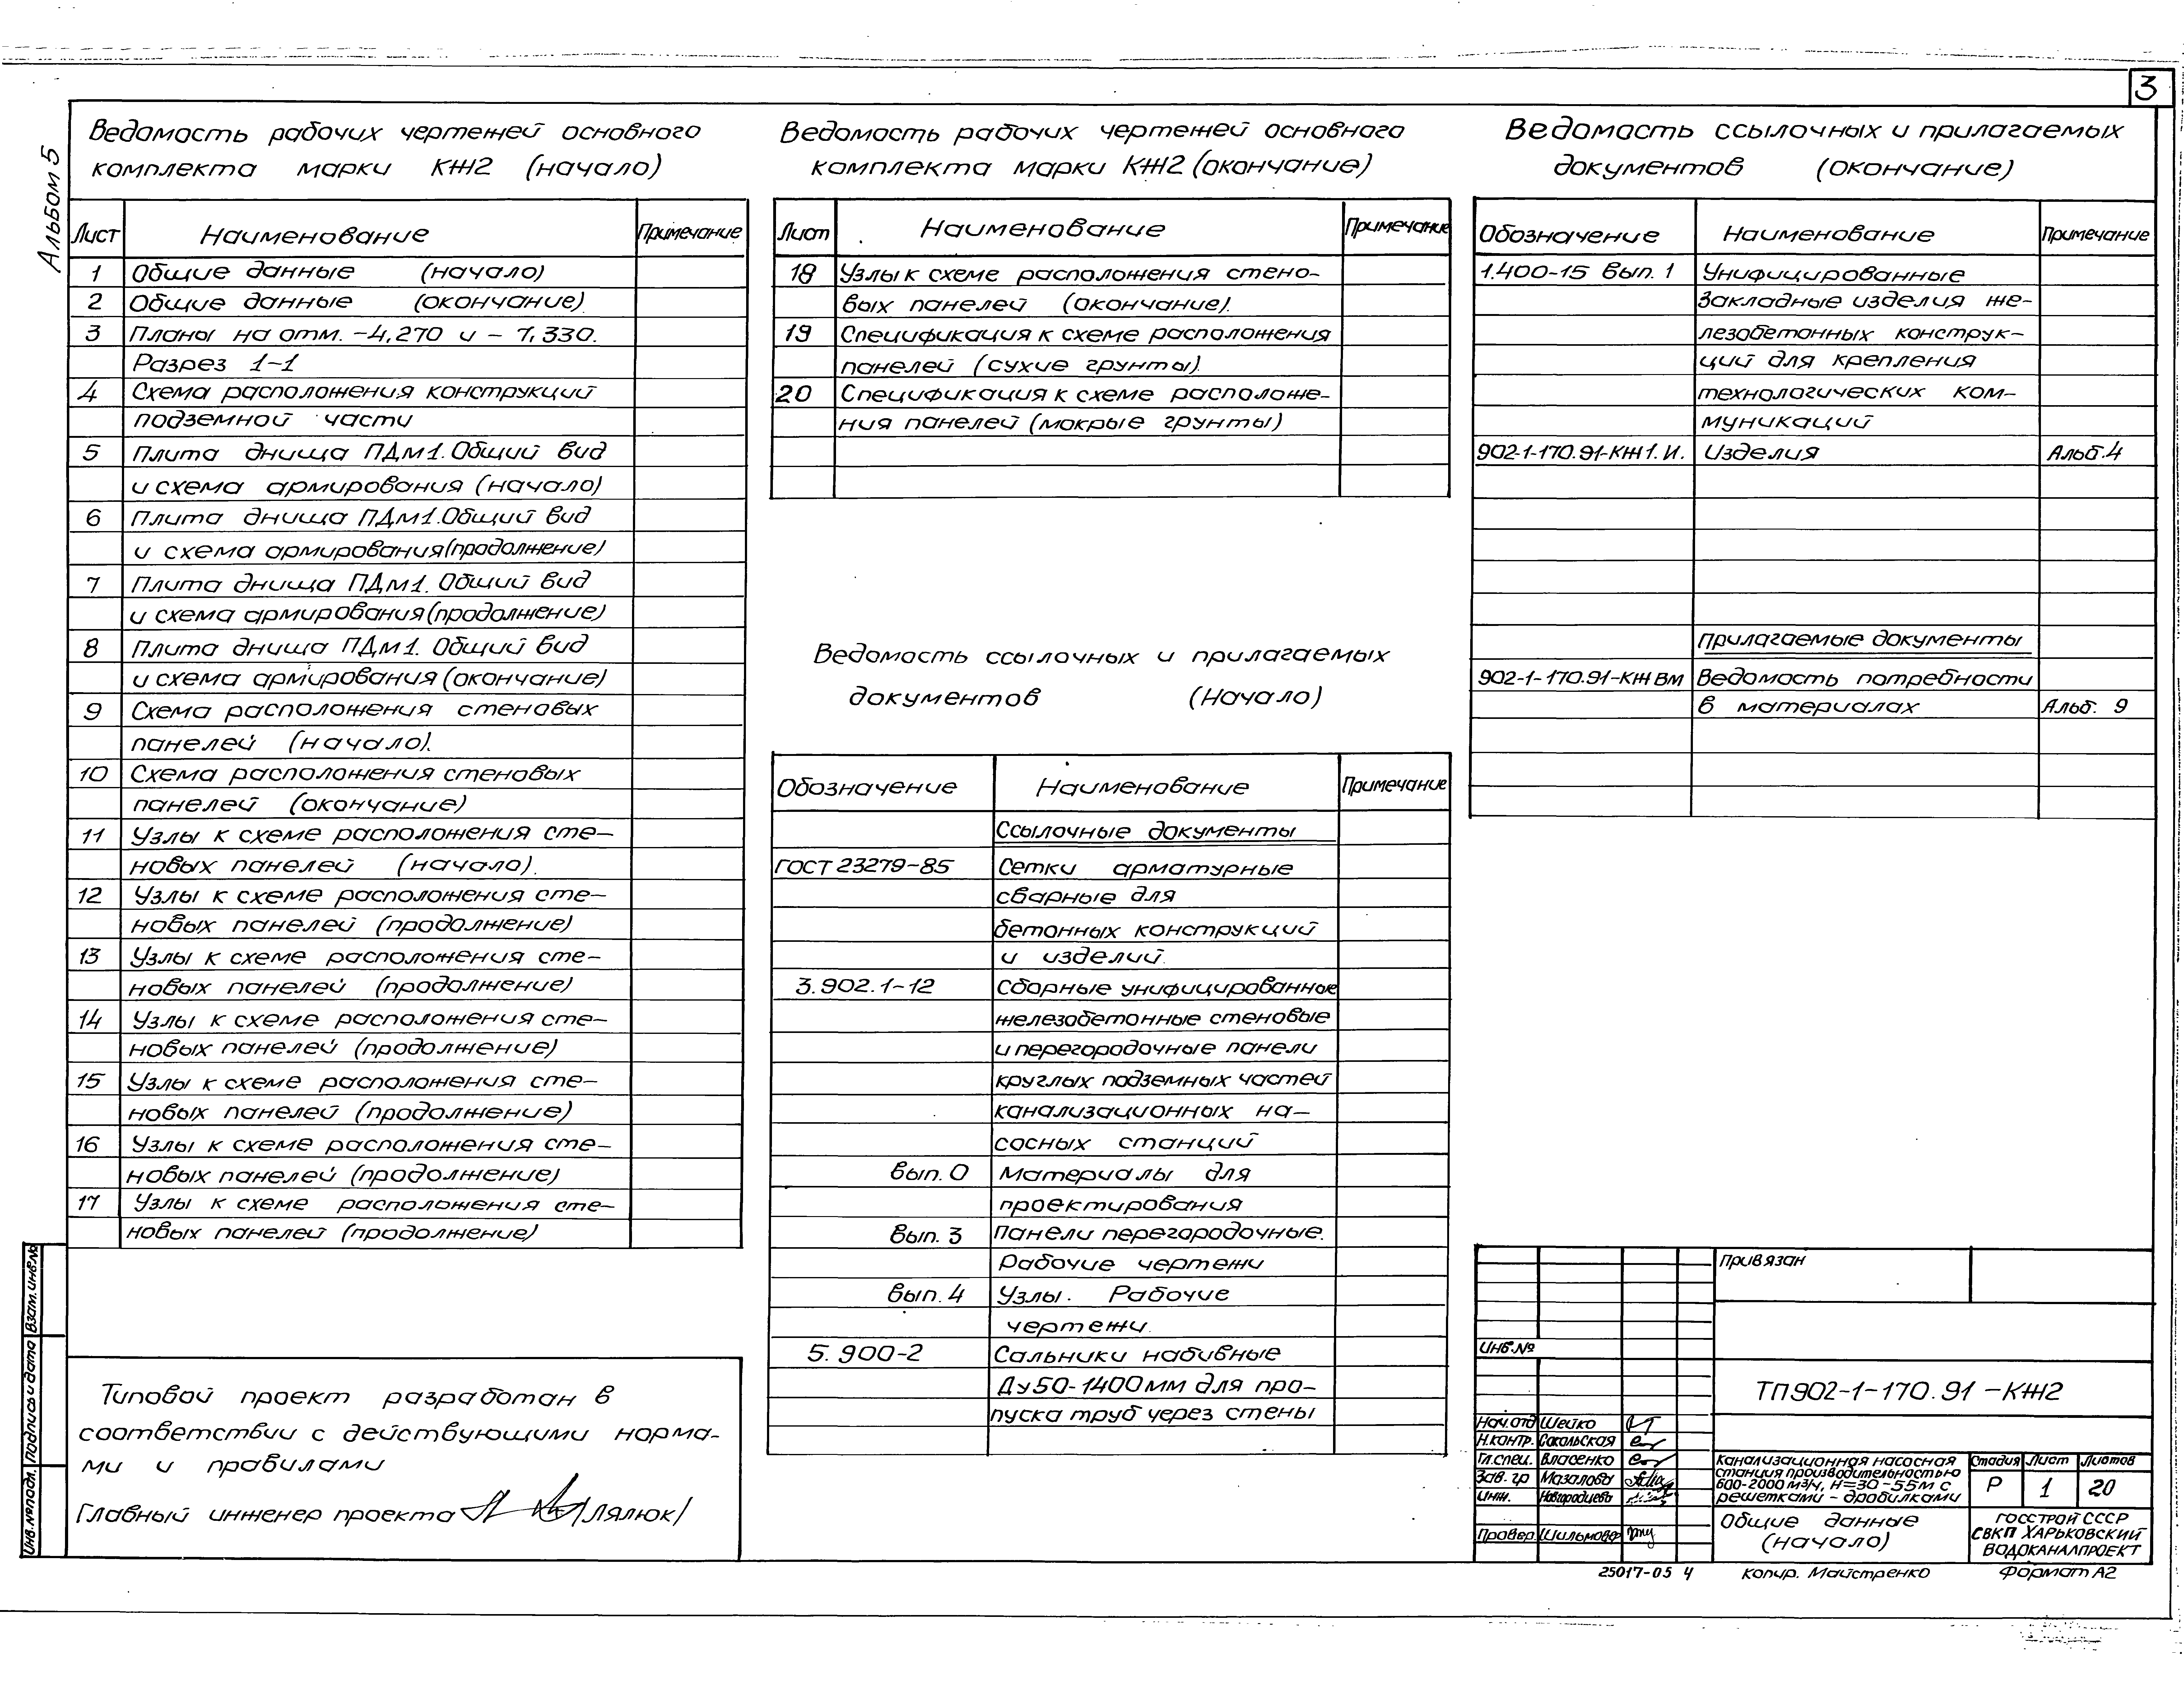 3
Альбом 5
Ведомость рабочих чертежей основного
комплекта марки КЖ2 (начало)
Лист Наименование Примечание
1 Общие данные (начало)
2 Общие данные (окончание)
3 Планы на отм. -4,270 и -1,330.
Разрез 1-1
4 Схема расположения конструкций
подземной части
5 Плита днища ПДм1. Общий вид
и схема армирования (начало)
6 Плита днища ПДм1. Общий вид
и схема армирования (продолжение)
7 Плита днища ПДм1. Общий вид
и схема армирования (продолжение)
8 Плита днища ПДм1. Общий вид
и схема армирования (окончание)
9 Схема расположения стеновых
панелей (начало).
10 Схема расположения стеновых
панелей (окончание)
11 Узлы к схеме расположения сте-
новых панелей (начало).
12 Узлы к схеме расположения сте-
новых панелей (продолжение)
13 Узлы к схеме расположения сте-
новых панелей (продолжение)
14 Узлы к схеме расположения сте-
новых панелей (продолжение)
15 Узлы к схеме расположения сте-
новых панелей (продолжение)
16 Узлы к схеме расположения сте-
новых панелей (продолжение)
17 Узлы к схеме расположения сте-
новых панелей (продолжение)
Типовой проект разработан в
соответствии с действующими норма-
ми и правилами
Главный инженер проекта /Лялюк/
Инв.№подл. Подпись и дата Взам.инв.№
Ведомость рабочих чертежей основнага
комплекта марки КЖ2 (окончание)
Лист Наименование Примечание
18 Узлы к схеме расположения стено-
вых панелей (окончание).
19 Спецификация к схеме расположения
панелей (сухие грунты).
20 Спецификация к схеме расположе-
ния панелей (мокрые грунты)
Ведомость ссылочных и прилагаемых
документов (Начало)
Обозначение Наименование Примечание
Ссылочные документы
ГОСТ 23279-85 Сетки арматурные
сварные для
бетонных конструкций
и изделий.
3.902.1-12 Сборные унифицированные
железобетонные стеновые
и перегородочные панели
круглых подземных частей
канализационных на-
сосных станций
вып. 0 Материалы для
проектирования
Вып. 3 Панели перегородочные.
Рабочие чертежи
вып. 4 Узлы. Рабочие
чертежи.
5.900-2 Сальники набивные
Ду50-1400мм для про-
пуска труб через стены
Ведомость ссылочных и прилагаемых
документов (окончание)
Обозначение Наименование Примечание
1.400-15 вып. 1 Унифицированные
закладные изделия же-
лезобетонных конструк-
ций для крепления
технологических ком-
муникаций
902-1-170.91-КЖ1.И. Изделия Альб.4
Прилагаемые документы
902-1-170.91-КЖ ВМ Ведомость потребности
в материалах Альб. 9
Привязан
Инв.№
ТП902-1-170.91-КЖ2
Нач.отд Шейко
Н.контр. Сокольская
Гл.спец. Власенко
Зав. гр Мазалова
Инж. Новгородцева
Провер. Шильмовер
Канализационная насосная
станция производительностью
600-2000 м³/ч, Н=30-55м с
решетками-дробилками
Стадия Лист Листов
Р 1 20
Общие данные
(начало)
ГОССТРОЙ СССР
СВКП ХАРЬКОВСКИЙ
ВОДОКАНАЛПРОЕКТ
25017-05 4 Копир. Майстренко Формат А2